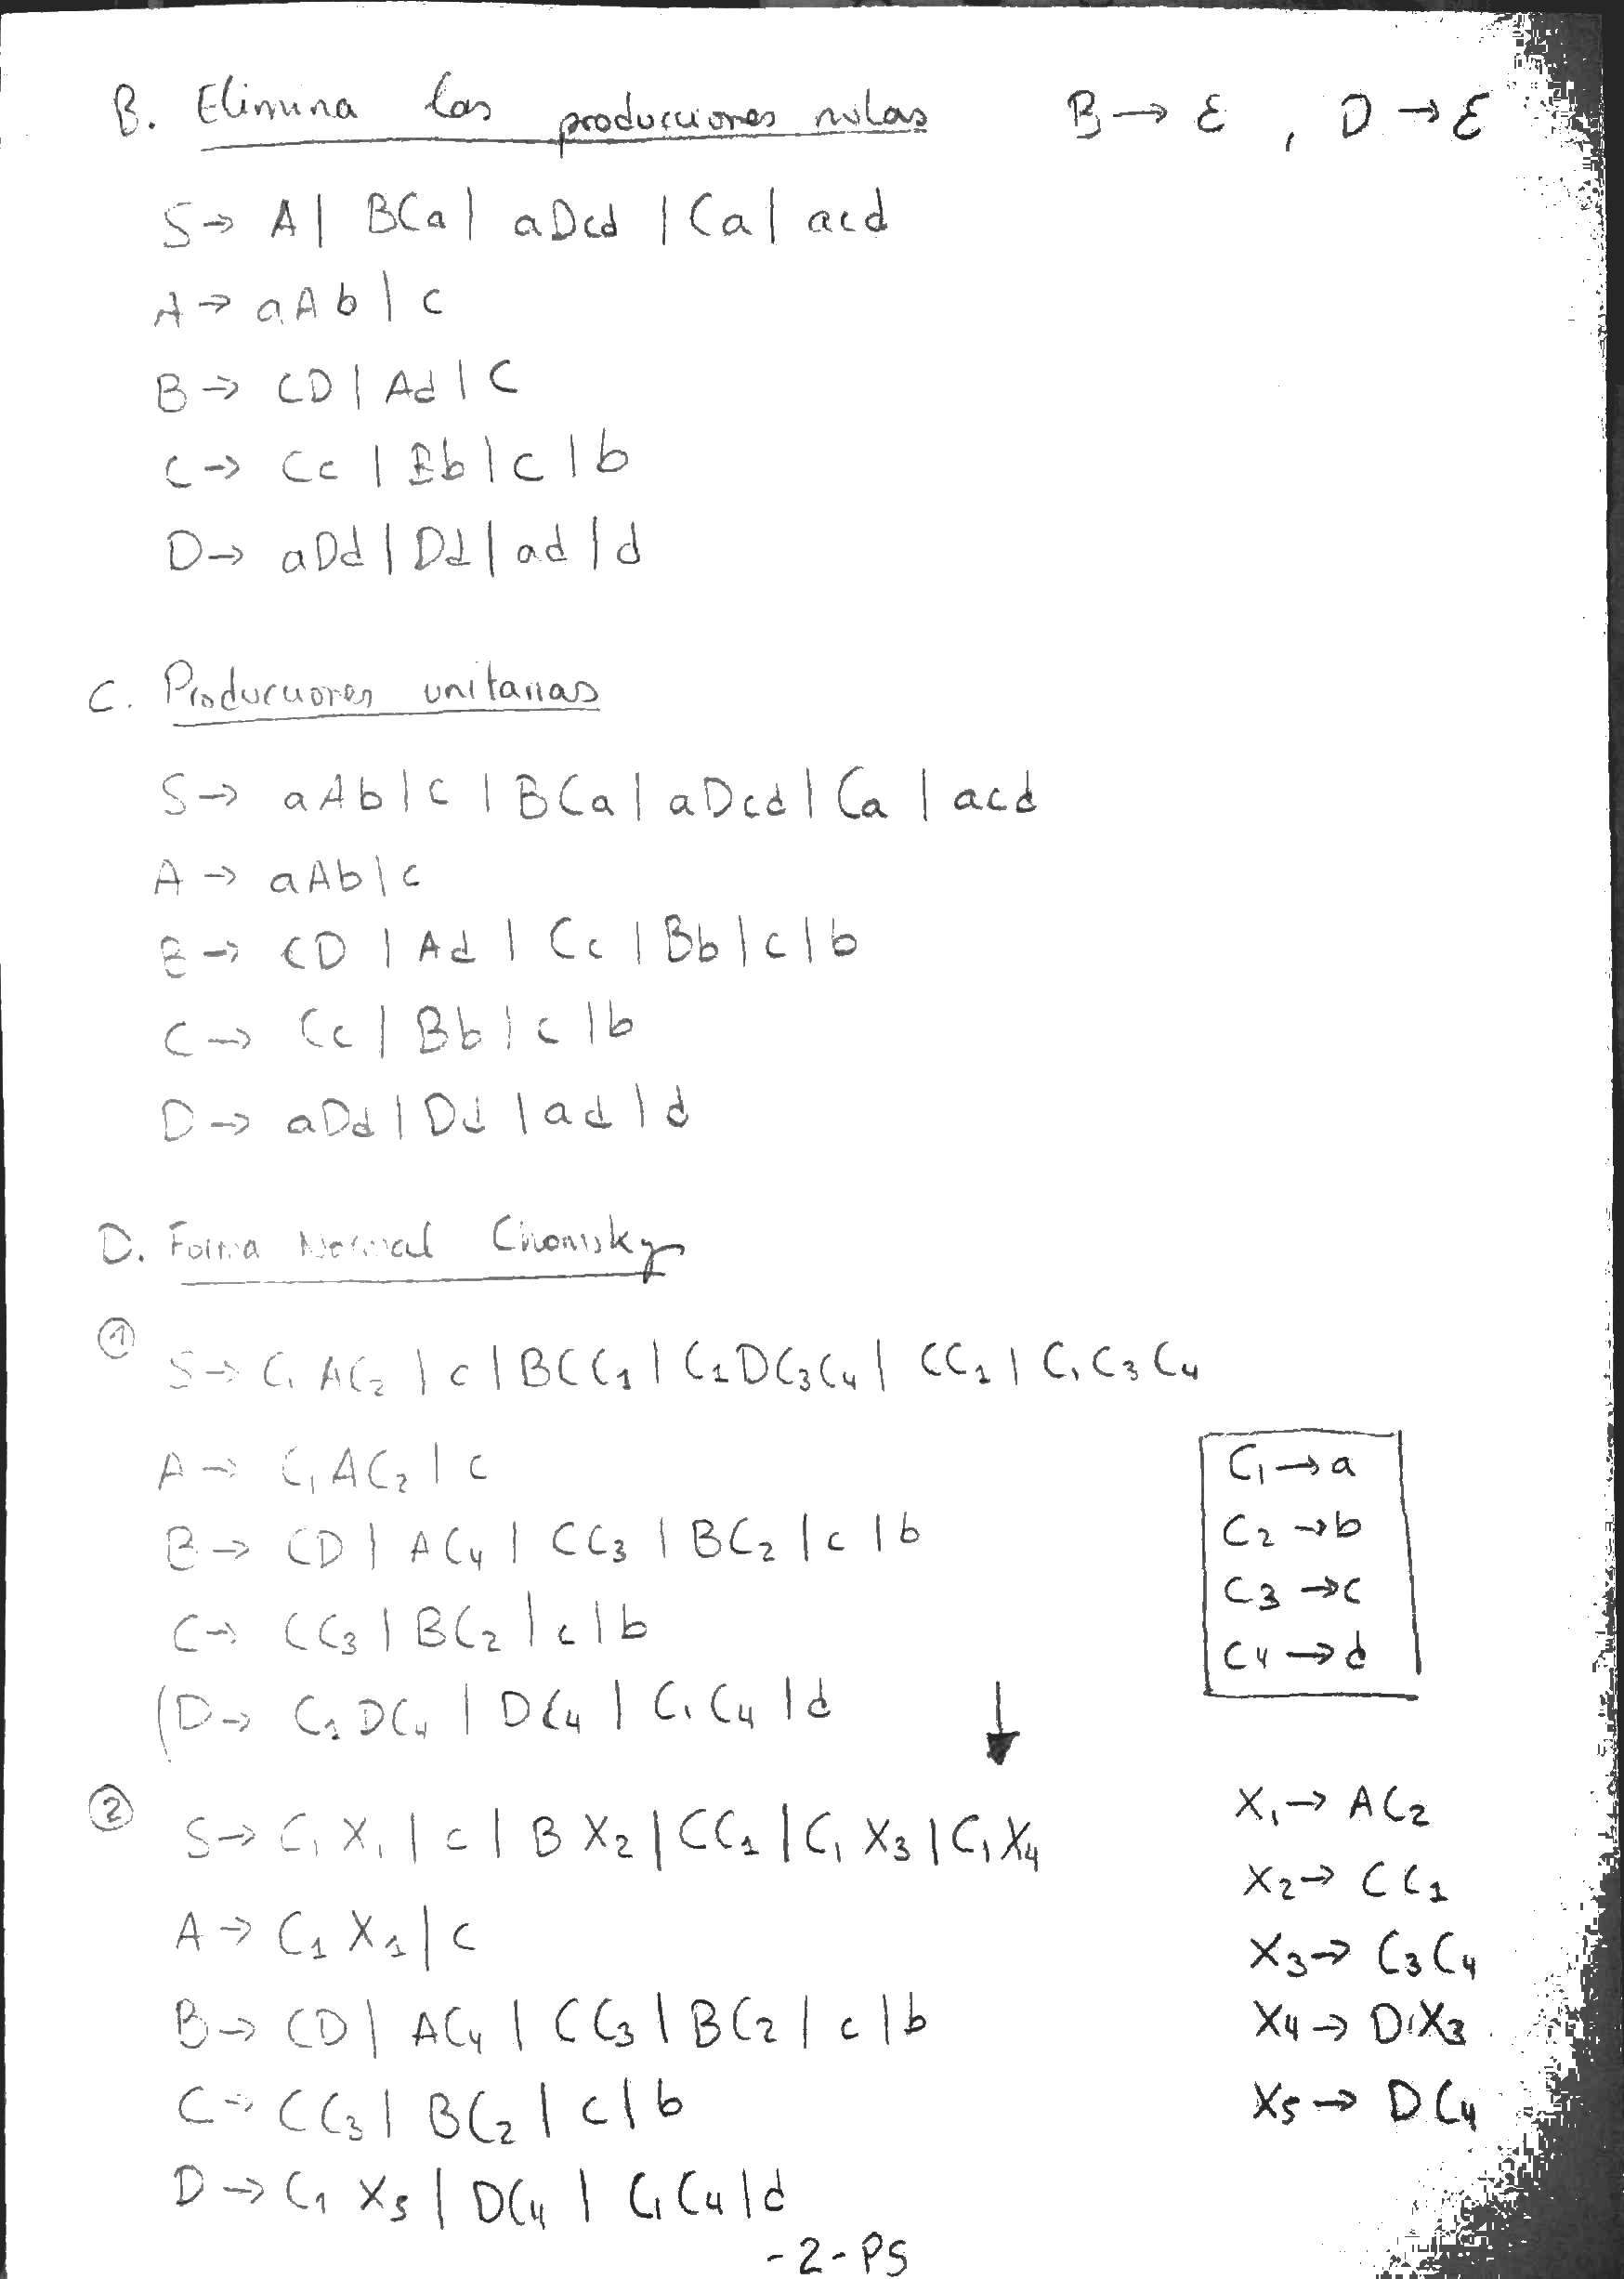 B. Elimina las producciones nulas B → ε , D → ε
S → A | BCa | aDcd | Ca | acd
A → aAb | c
B → CD | Ad | C
C → Cc | Bb | c | b
D → aDd | Dd | ad | d
C. Producciones unitarias
S → aAb | c | BCa | aDcd | Ca | acd
A → aAb | c
B → CD | Ad | Cc | Bb | c | b
C → Cc | Bb | c | b
D → aDd | Dd | ad | d
D. Forma Normal Chomsky
①
S → C₁AC₂ | c | BCC₁ | C₁DC₃C₄ | CC₁ | C₁C₃C₄
A → C₁AC₂ | c
B → CD | AC₄ | CC₃ | BC₂ | c | b
C → CC₃ | BC₂ | c | b
D → C₁DC₄ | DC₄ | C₁C₄ | d
C₁ → a
C₂ → b
C₃ → c
C₄ → d
②
S → C₁X₁ | c | BX₂ | CC₁ | C₁X₃ | C₁X₄
A → C₁X₁ | c
B → CD | AC₄ | CC₃ | BC₂ | c | b
C → CC₃ | BC₂ | c | b
D → C₁X₅ | DC₄ | C₁C₄ | d
X₁ → AC₂
X₂ → CC₁
X₃ → C₃C₄
X₄ → DX₃
X₅ → DC₄
-2-PS